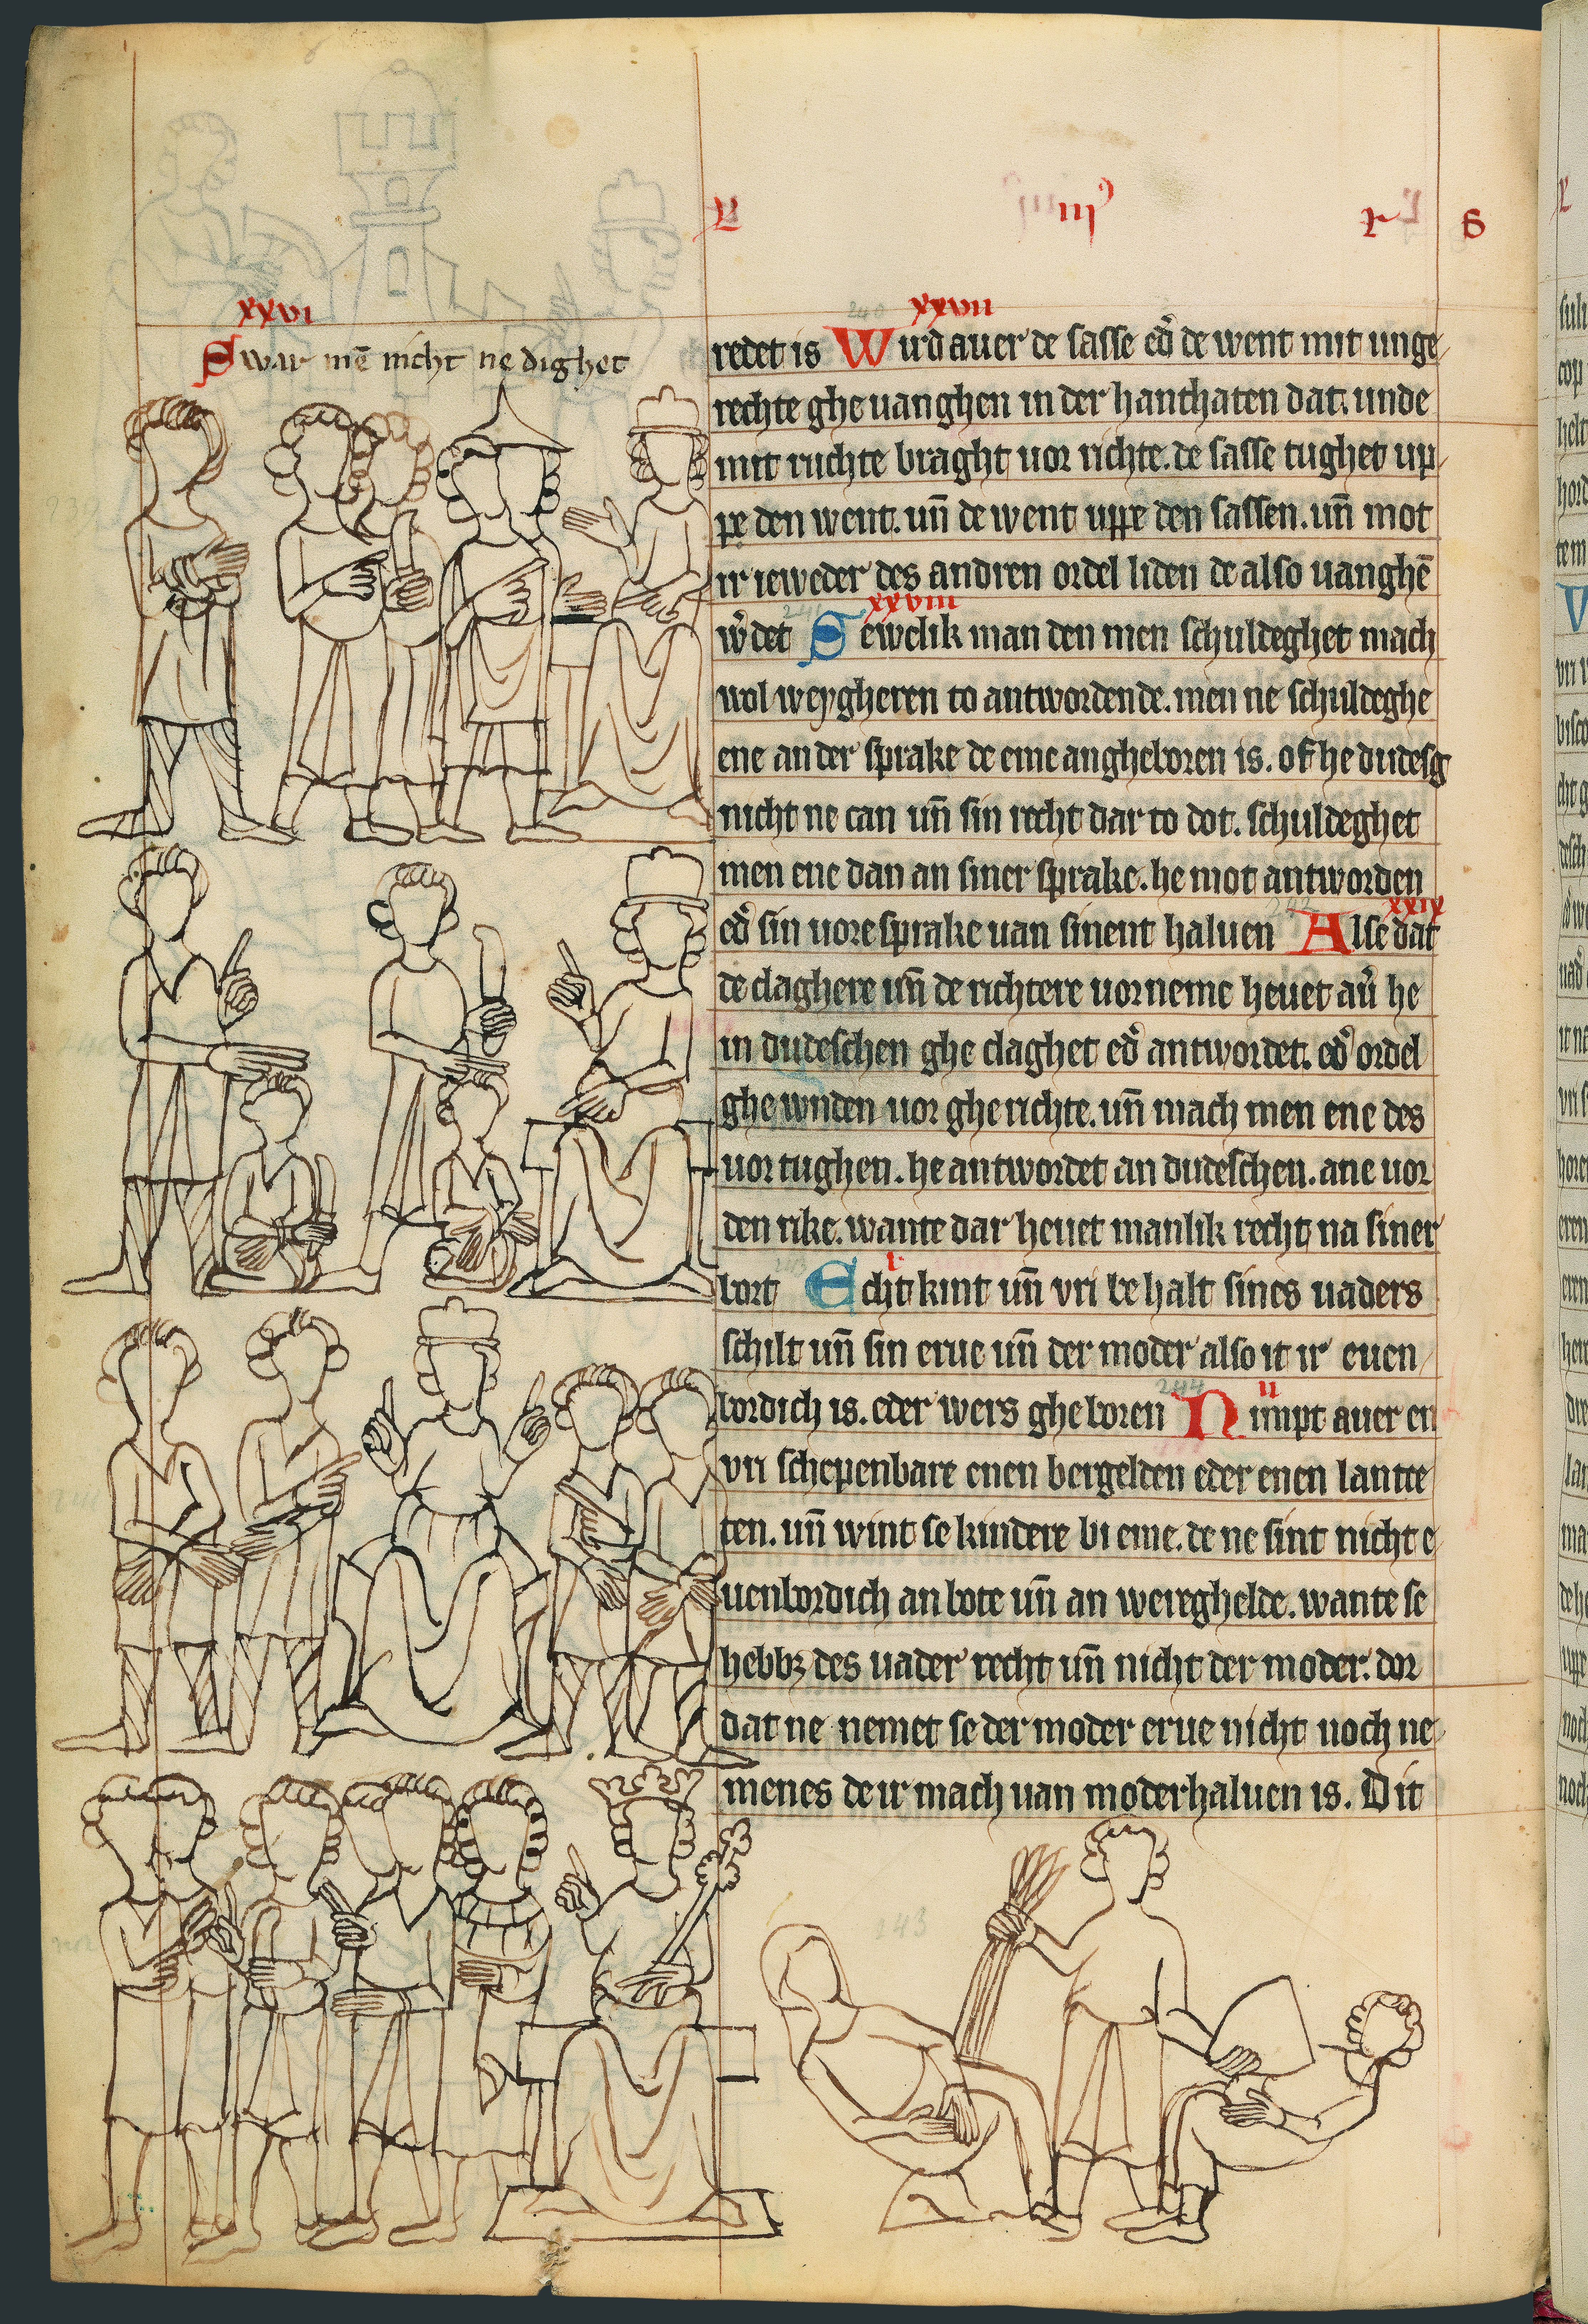 L iiiꝰ r S
xxvi
Swar mē nicht ne dighet
240 xxvii
redet is Wirdauer de sasse ed̕ de went mit unge
rechte ghe uanghen in der hanthaten dat. unde
mit ruchte braght uor richte. de sasse tughet up
pe den went. un̄ de went uppe den sassen. un̄ mot
ir ieweder des andren ordel liden de also uanghē
xxviii
w̕det Iewelik man den men schuldeghet mach
wol weygheren to antwordende. men ne schuldeghe
ene an der sprake de eme angheboren is. of he dudesg
nicht ne can un̄ sin recht dar to dot. schuldeghet
men ene dan an siner sprake. he mot antworden
xxix
ed̕ sin uore sprake uan sinent haluen Alse dat
de claghere un̄ de richtere uorneme heuet au̕ he
in dudeschen ghe claghet ed̕ antwordet. ed̕ ordel
ghe wnden uor gherichte. un̄ mach men ene des
uor tughen. he antwordet an dudeschen. ane uor
den rike. wante dar heuet manlik recht na siner
i
bort Echt kint un̄ vri be halt sines uaders
schilt un̄ sin erue un̄ der moder also it ir euen
244 ii
bordich is. eder wers gheboren Nimpt auer en
vri schepenbare enen bergelden eder enen lantse
ten. un̄ wint se kindere bi eme. de ne sint nicht e
uenbordich an bote un̄ an wereghelde. wante se
hebbꝫ des uader recht un̄ nicht der moder. dor
dat ne nemet se der moder erue nicht noch ne
menes de ir mach uan moderhaluen is. Dit
243